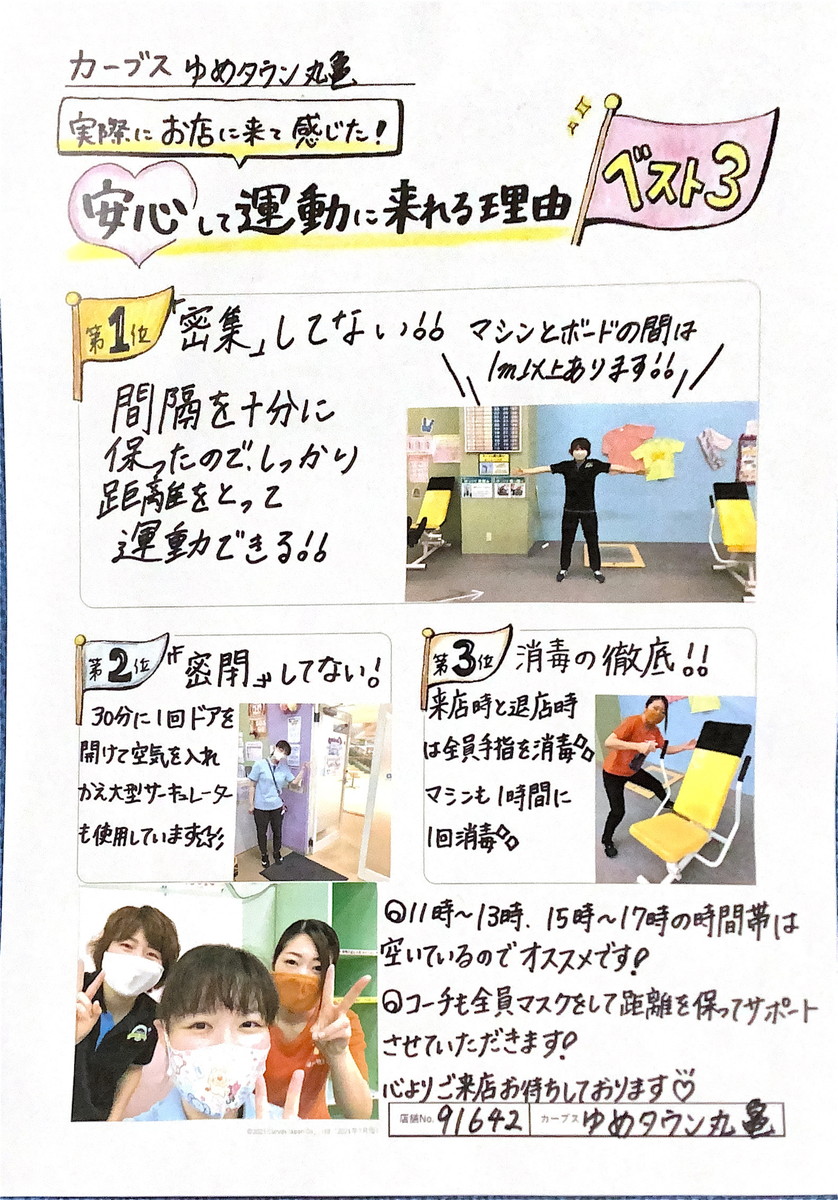 カーブス ゆめタウン丸亀
実際に お店に来て 感じた!
安心して運動に来れる理由
ベスト3
第1位
「密集」してない!!
マシンとボードの間は
1m以上あります!!
間隔を十分に
保ったので、しっかり
距離をとって
運動できる!!
第2位
『密閉』してない!
30分に1回ドアを
開けて空気を入れ
かえ大型サーキュレーター
も使用しています
第3位
消毒の徹底!!
来店時と退店時
は全員手指を消毒
マシンも1時間に
1回消毒
11時～13時、15時～17時の時間帯は
空いているのでオススメです!
コーチも全員マスクをして距離を保ってサポート
させていただきます!
心よりご来店お待ちしております♡
店舗No. 91642 カーブス ゆめタウン丸亀